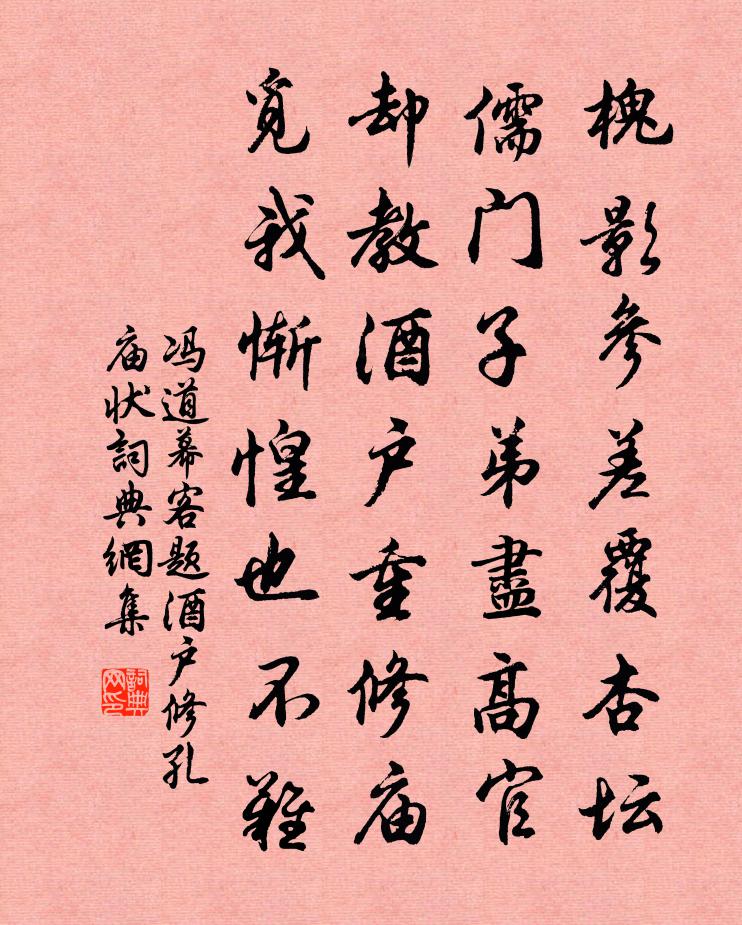 槐影參差覆杏坛
儒门子弟盡高官
却教酒户重修庙
覓我惭惶也不難
冯道幕客题酒户修孔
庙状詞典網集
詞典网印